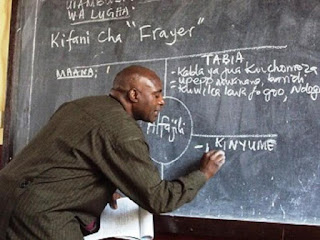 UIAMBU
WA LUGHA:
Kifani Cha "Frayer"
MAANA:
TABIA
- Kabla ya jua Kuchomoza
- upepo mwanana, baridi
- Kuwika kwa jogoo, Ndege
Alfajili
- KINYUME